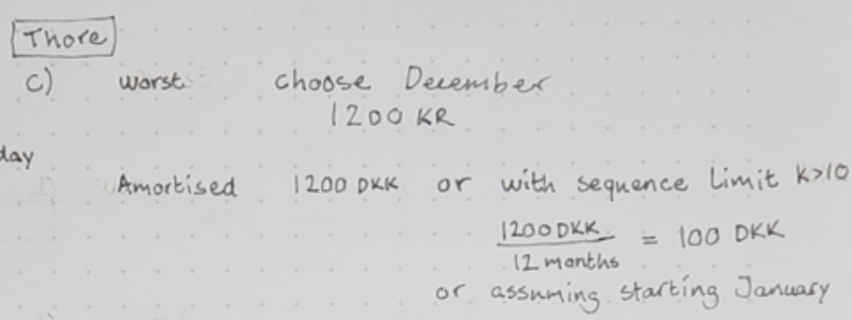 Thore
c) worst choose December
1200 KR
day
Amortised 1200 DKK or with sequence Limit k>10
1200 DKK / 12 months = 100 DKK
or assuming starting January